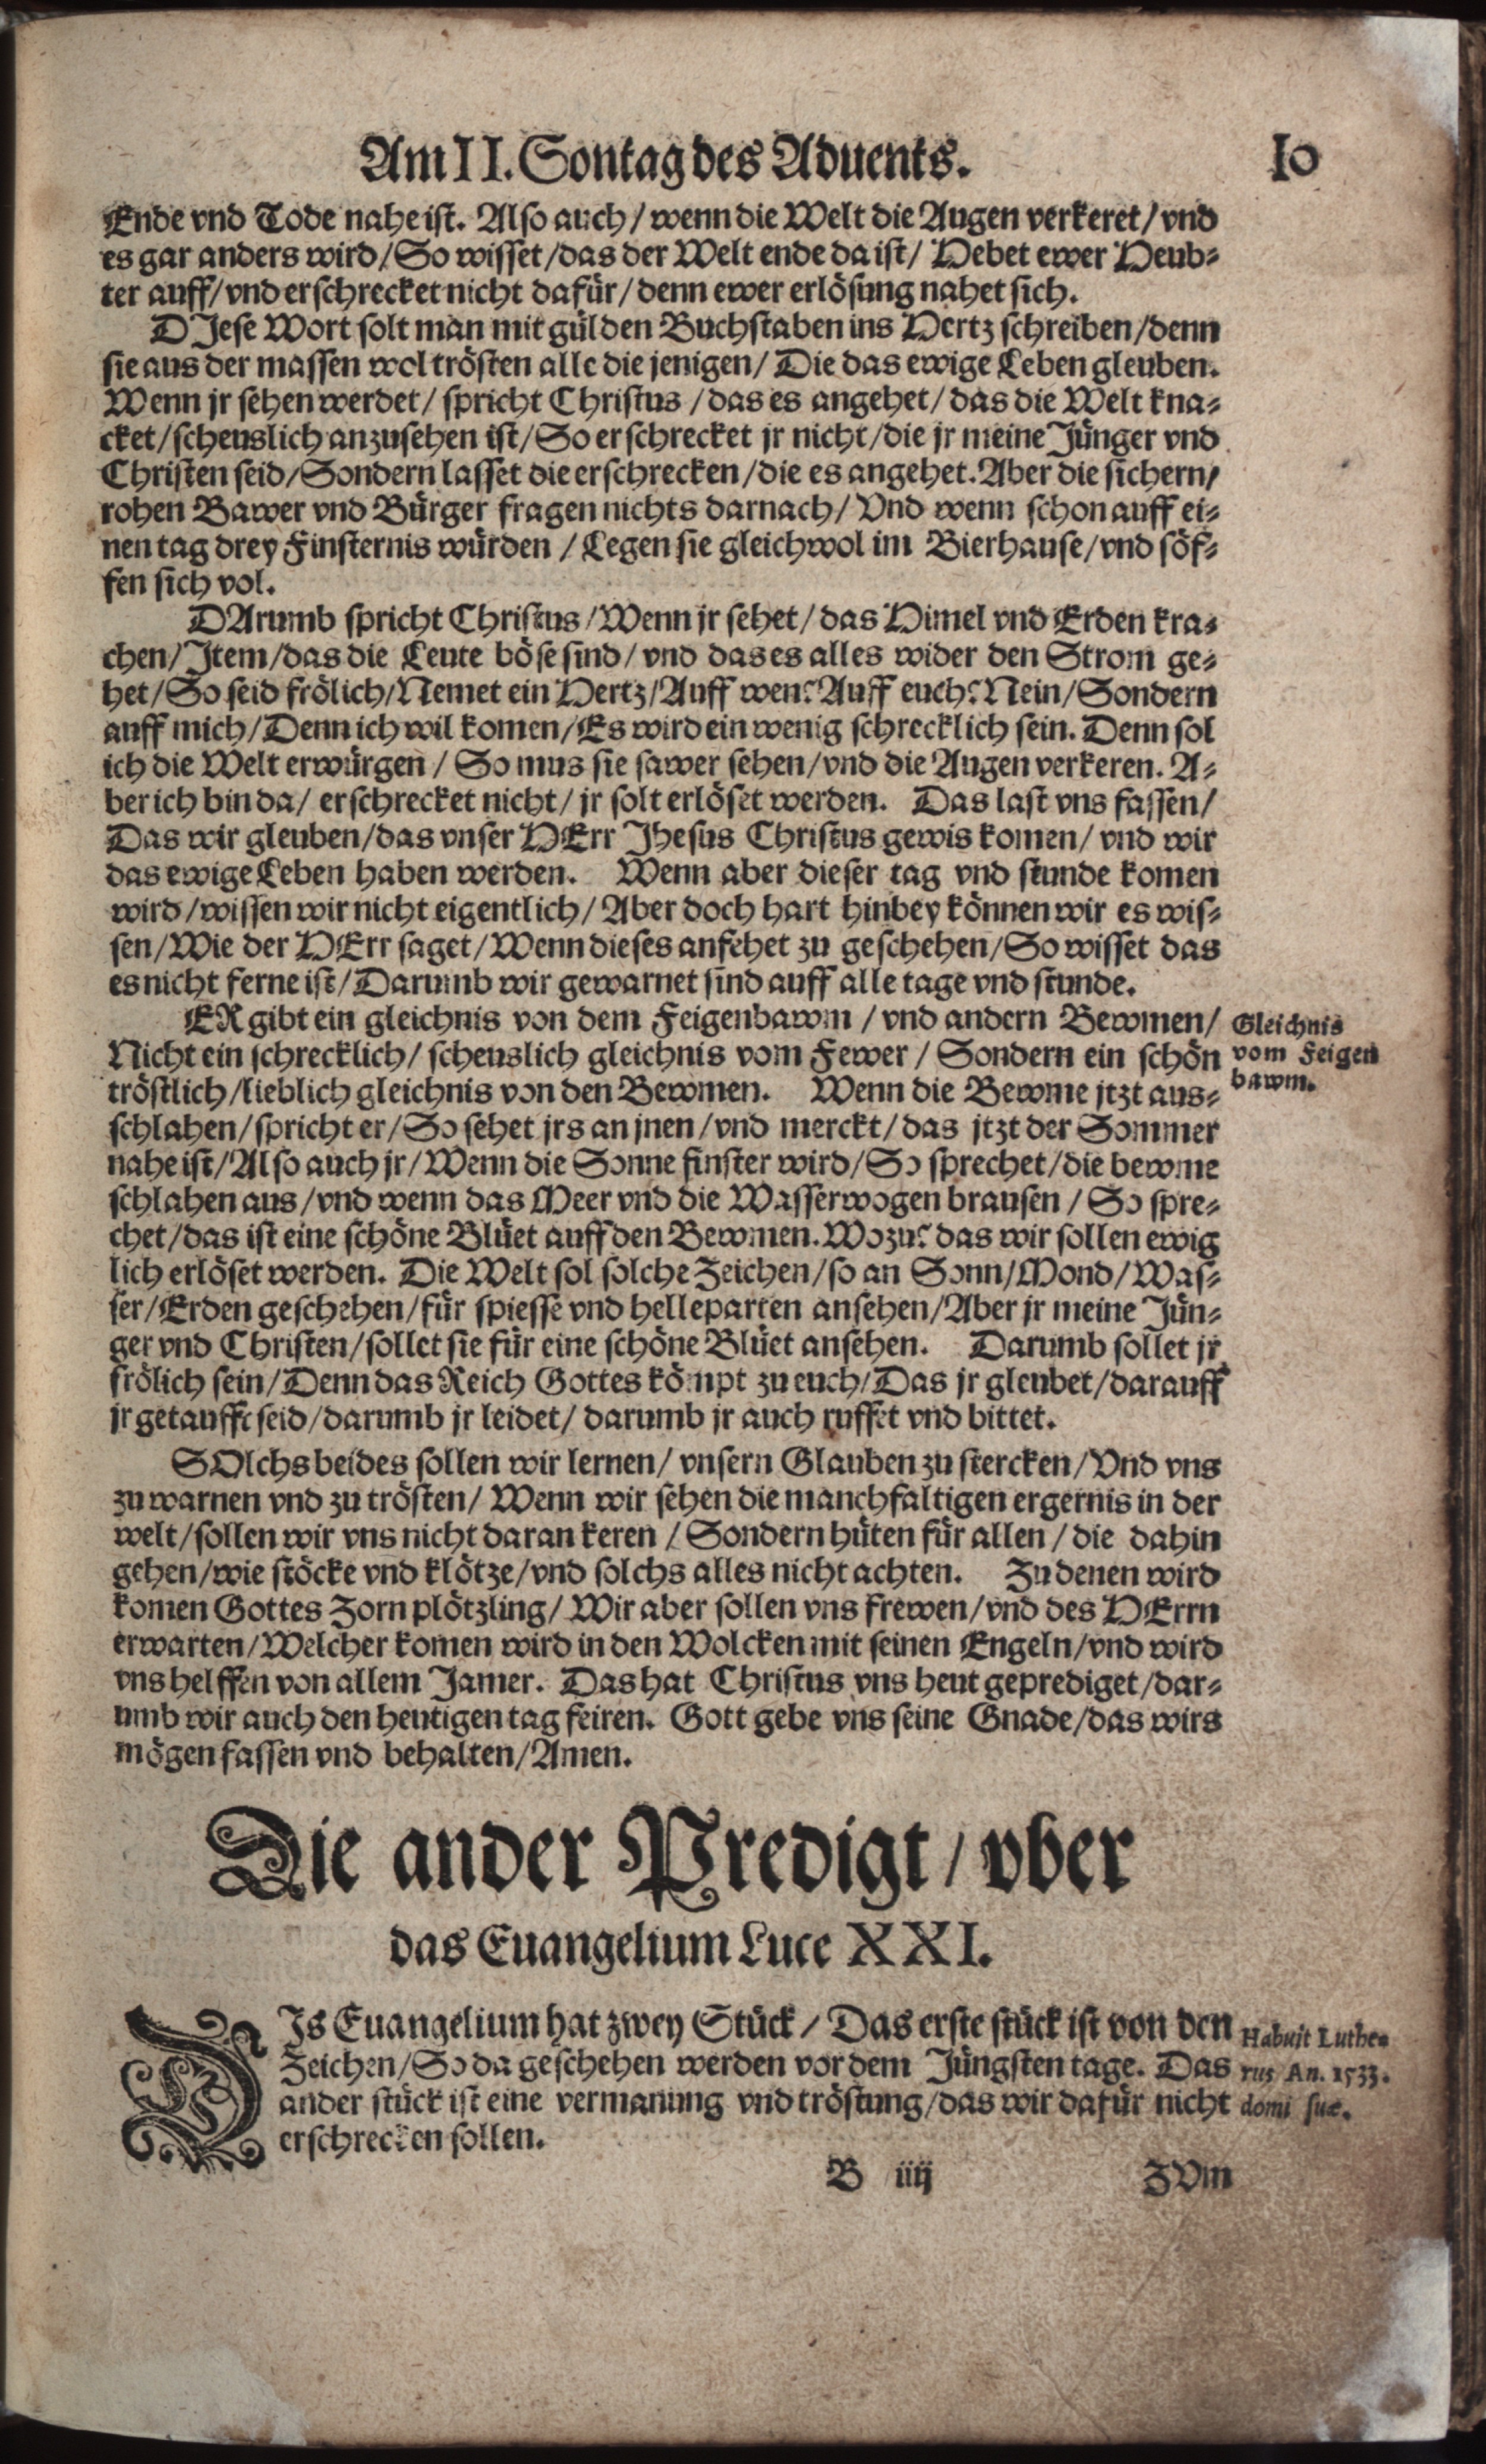 Am II. Sontag des Aduents. 10
Ende vnd Tode nahe ist. Also auch / wenn die Welt die Augen verkeret / vnd
es gar anders wird / So wisset / das der Welt ende da ist / Hebet ewer Heub-
ter auff / vnd erschrecket nicht dafür / denn ewer erlösung nahet sich.
DIese Wort solt man mit gülden Buchstaben ins Hertz schreiben / denn
sie aus der massen wol trösten alle die jenigen / Die das ewige Leben gleuben.
Wenn jr sehen werdet / spricht Christus / das es angehet / das die Welt kna-
cket / scheuslich anzusehen ist / So erschrecket jr nicht / die jr meine Jünger vnd
Christen seid / Sondern lasset die erschrecken / die es angehet. Aber die sichern /
rohen Bawer vnd Bürger fragen nichts darnach / Vnd wenn schon auff ei-
nen tag drey Finsternis würden / Legen sie gleichwol im Bierhause / vnd söf-
fen sich vol.
DArumb spricht Christus / Wenn jr sehet / das Himel vnd Erden kra-
chen / Item / das die Leute böse sind / vnd das es alles wider den Strom ge-
het / So seid frölich / Nemet ein Hertz / Auff wen? Auff euch? Nein / Sondern
auff mich / Denn ich wil komen / Es wird ein wenig schrecklich sein. Denn sol
ich die Welt erwürgen / So mus sie sawer sehen / vnd die Augen verkeren. A-
ber ich bin da / erschrecket nicht / jr solt erlöset werden. Das last vns fassen /
Das wir gleuben / das vnser HErr Jhesus Christus gewis komen / vnd wir
das ewige Leben haben werden. Wenn aber dieser tag vnd stunde komen
wird / wissen wir nicht eigentlich / Aber doch hart hinbey können wir es wis-
sen / Wie der HErr saget / Wenn dieses anfehet zu geschehen / So wisset das
es nicht ferne ist / Darumb wir gewarnet sind auff alle tage vnd stunde.
ER gibt ein gleichnis von dem Feigenbawm / vnd andern Bewmen /
Gleichnis
vom Feigen
bawm.
Nicht ein schrecklich / scheuslich gleichnis vom Fewer / Sondern ein schön
tröstlich / lieblich gleichnis von den Bewmen. Wenn die Bewme jtzt aus-
schlahen / spricht er / So sehet jrs an jnen / vnd merckt / das jtzt der Sommer
nahe ist / Also auch jr / Wenn die Sonne finster wird / So sprechet / die bewme
schlahen aus / vnd wenn das Meer vnd die Wasserwogen brausen / So spre-
chet / das ist eine schöne Blüet auff den Bewmen. Wozu? das wir sollen ewig
lich erlöset werden. Die Welt sol solche Zeichen / so an Sonn / Mond / Was-
ser / Erden geschehen / für spiesse vnd helleparten ansehen / Aber jr meine Jün-
ger vnd Christen / sollet sie für eine schöne Blüet ansehen. Darumb sollet jr
frölich sein / Denn das Reich Gottes kömpt zu euch / Das jr gleubet / darauff
jr getaufft seid / darumb jr leidet / darumb jr auch ruffet vnd bittet.
SOlchs beides sollen wir lernen / vnsern Glauben zu stercken / Vnd vns
zu warnen vnd zu trösten / Wenn wir sehen die manchfaltigen ergernis in der
welt / sollen wir vns nicht daran keren / Sondern hüten für allen / die dahin
gehen / wie stöcke vnd klötze / vnd solchs alles nicht achten. Zu denen wird
komen Gottes Zorn plötzling / Wir aber sollen vns frewen / vnd des HErrn
erwarten / Welcher komen wird in den Wolcken mit seinen Engeln / vnd wird
vns helffen von allem Jamer. Das hat Christus vns heut geprediget / dar-
umb wir auch den heutigen tag feiren. Gott gebe vns seine Gnade / das wirs
mögen fassen vnd behalten / Amen.
Die ander Predigt / vber
das Euangelium Luce XXI.
DIs Euangelium hat zwey Stück / Das erste stück ist von den
Zeichen / So da geschehen werden vor dem Jüngsten tage. Das
ander stück ist eine vermanung vnd tröstung / das wir dafür nicht
erschrecken sollen.
Habuit Luthe-
rus An. 1533.
domi suæ.
B iiij ZVm